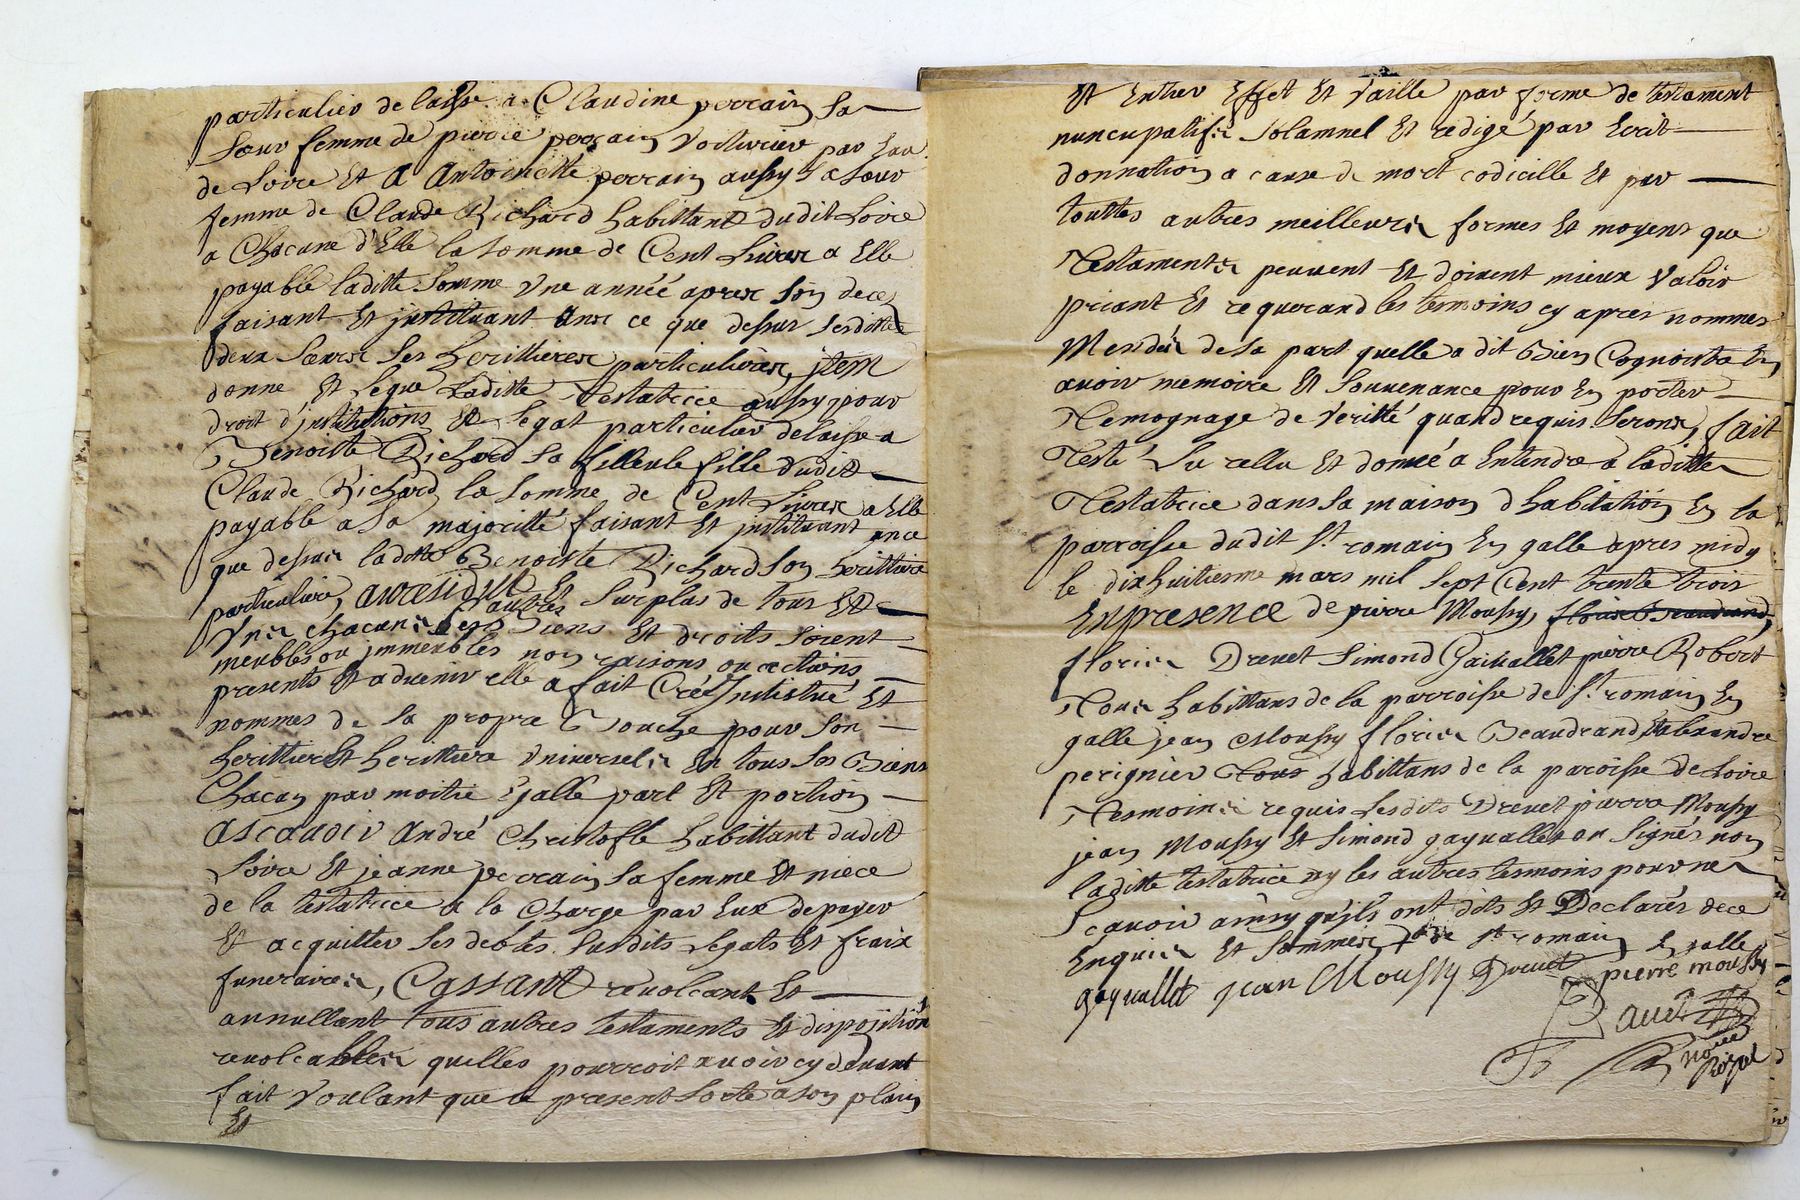 particulier delaisse a Claudine perrain sa
sœur femme de pierre perrain voiturier par Eau
de Loire Et a Antoinette perrain aussy sa sœur
femme de Claude Richard habittant dudit Loire
a Chacune d'Elle la somme de Cent Livres a Elle
payable laditte somme Une année apres son deces
faisant Et jnstituant En ce que dessus sesdittes
deux sœurs ses herittieres particulieres, jtem
donne Et legue Laditte Testatrice aussy pour
droit d'jnstitutions Et legat particulier delaisse a
Benoiste Richard sa filleule fille dudit
Claude Richard la somme de Cent Livres a Elle
payable a sa majoritté faisant Et jnstituant En ce
que dessus laditte Benoiste Richard son herittiere
particuliere, au residut Et surplus de tous Et
Uns chacuns ses autres Biens Et droits soient
meubles ou jmmeubles noms raisons ou actions
presents Et advenir elle a fait Créé Jnstitué Et
nommes de sa propre Bouche pour son
herittier Et herittiere Universels En tous ses Biens
Chacun par moitié Egalle part Et portion
Ascavoir André Christofle habittant dudit
Loire Et jeanne perrain sa femme Et niece
de la testatrice a la Charge par Eux de payer
Et acquitter ses debtes susdits Legats Et fraix
funeraires, Cassant revolcant Et
annullant tous autres testaments Et disposition
revolcables quelles pourroit avoir cy devant
fait Voulant que ce present sorte a son plain
Et
Et Entier Effet Et Vaille par forme de testament
nuncupatifs solamnel Et redigé par Ecrit
donnation a cause de mort codicille Et par
touttes autres meilleurs formes Et moyens que
Testaments peuvent Et doivent mieux Valoir
priant Et requerand les tesmoins cy apres nommes
Mendés de sa part quelle a dit Bien Cognoistre En
avoir memoire Et souvenance pour En porter
Temognage de Veritté quand requis serons, fait
Testé Lu rellu Et donné a Entendre a laditte
Testatrice dans sa maison d'habitation En la
parroisse dudit St romain En galle apres midy
le dixhuitiesme mars mil sept Cent trente trois
En presence de pierre Moussy
floris Drevet simond Gaivallet pierre Robert
Tous habittans de la parroisse de St romain En
galle jean Moussy floris Beaudrand
perignier Tous habittans de la paroisse de Loire
Tesmoins requis lesdits Drevet pierre Moussy
jean Moussy Et simond gayvallet on signés non
laditte testatrice ny les autres tesmoins pour ne
scavoir ainsy qu'ils ont dits Et Declarés de ce
Enquis Et sommés St romain En galle
gayvallet jean Moussy Drevet pierre moussy
notaire
Royal